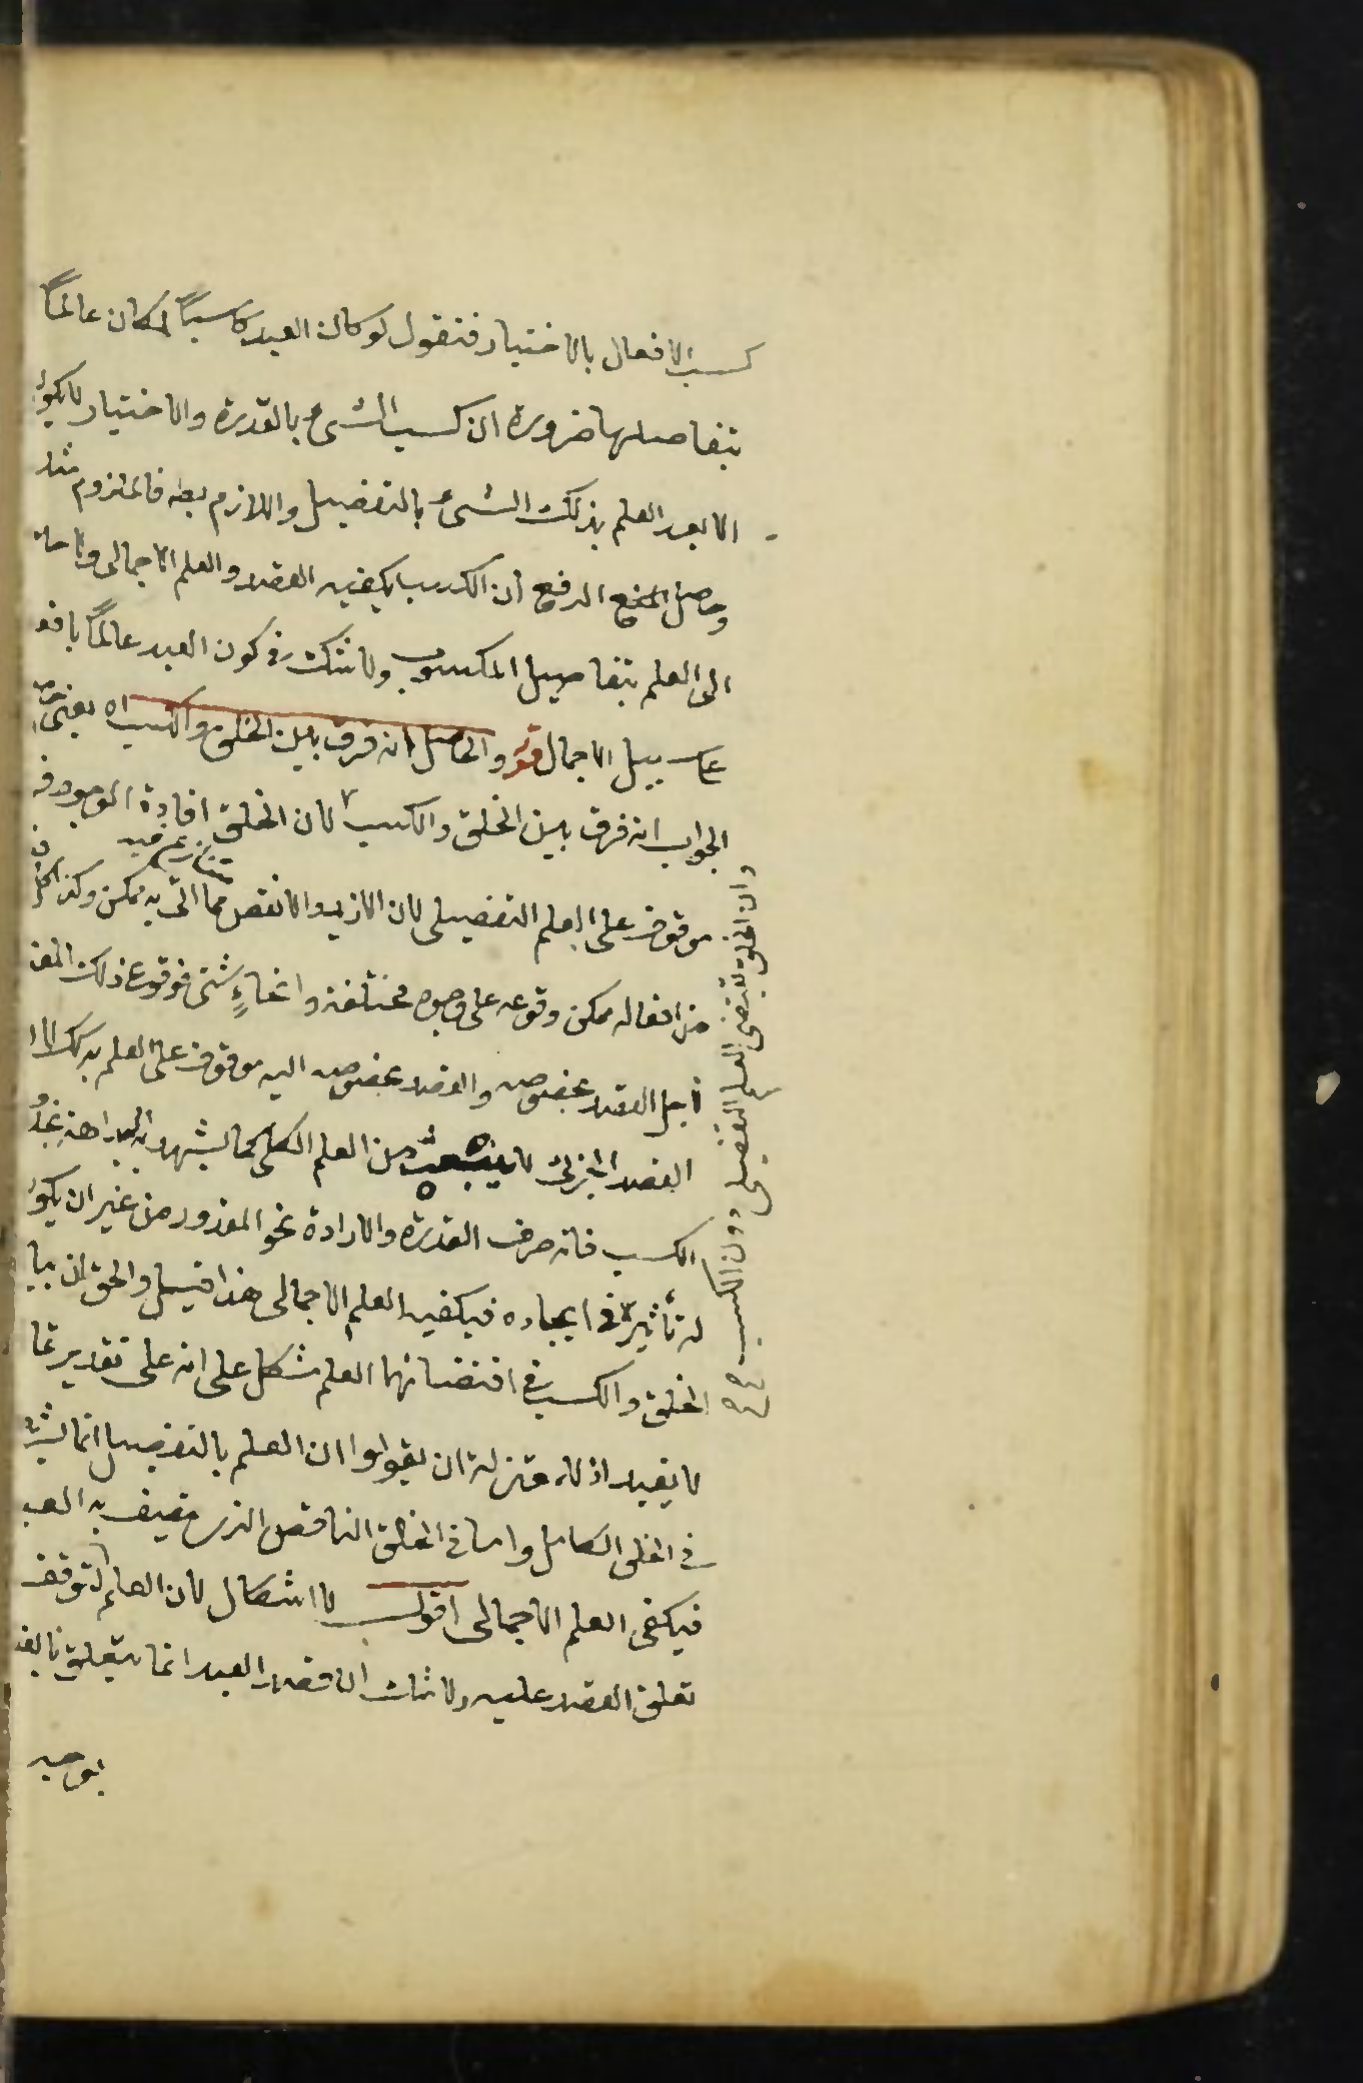 كسب الافعال بالاختيار فنقول لو كان العبد كاسباً لكان عالماً
بتفاصيلها ضرورة ان كسب الشئ بالقدرة والاختيار لا يكون
الا بعد العلم بذلك الشئ بالتفصيل واللازم بط فالملزوم مثله
وحاصل الدفع أن الكسب يكفيه القصد والعلم الاجمالى ولا حاجة
الى العلم بتفاصيل المكسوب ولا شك فى كون العبد عالماً بافعا
على سبيل الاجمال قوله والحاصل انه فرق بين الخلق والكسب اه يعنى
الجواب انه فرق بين الخلق والكسب لان الخلق افادة الوجود
موقوف على العلم التفصيلى لان الازيد والانقص مما اتى به ممكن وكذا
من افعاله ممكن وقوعه على وجوه مختلفة وانحاءٍ شتى فوقوع ذلك
لاجل القصد بخصوصه والقصد بخصوصه اليه موقوف على العلم به كذلك
القصد الجزئى لا ينبعث من العلم الكلى كما يشهد به البداهة بخلاف
الكسب فانه صرف القدرة والارادة نحو المقدور من غير ان يكون
له تأثير فى ايجاده فيكفيه العلم الاجمالى هذا قيل والحق ان بيا
الخلق والكسب فى اقتضائهما العلم مشكل على انه على تقدير تما
لا يفيد اذ للمعتزلة ان يقولوا ان العلم بالتفصيل انما يشتر
فى الخلق الكامل واما فى الخلق الناقص الذى يتصف به العب
فيكفى العلم الاجمالى اقول لا اشكال لان العلم لتوقف
تعلق القصد عليه ولا شك ان قصد العبد انما يتعلق بالفع
بوجه
وان الخلق يقتضى العلم التفصيلى دون الكسب